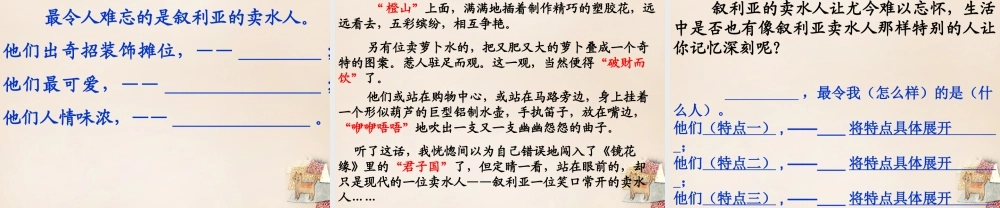 最令人难忘的是叙利亚的卖水人。
他们出奇招装饰摊位，—— ＿＿＿＿＿；
他们最可爱，—— ＿＿＿＿＿＿＿＿；
他们人情味浓，—— ＿＿＿＿＿＿＿＿。
“橙山”上面，满满地插着制作精巧的塑胶花，远
远看去，五彩缤纷，相互争艳。
另有位卖萝卜水的，把又肥又大的萝卜叠成一个奇
特的图案。惹人驻足而观。这一观，当然便得“破财而
饮”了。
他们或站在购物中心，或站在马路旁边，身上挂着
一个形似葫芦的巨型铝制水壶，手执笛子，放在嘴边，
“咿咿唔唔”地吹出一支又一支幽幽怨怨的曲子。
听了这话，我恍惚间以为自己错误地闯入了《镜花
缘》里的“君子国”了，但定睛一看，站在眼前的，却
只是现代的一位卖水人——叙利亚一位笑口常开的卖水
人……
叙利亚的卖水人让尤今难以忘怀，生活
中是否也有像叙利亚卖水人那样特别的人让
你记忆深刻呢？
＿＿＿＿＿，最令我（怎么样）的是（什
么人）。
他们（特点一），——＿＿ 将特点具体展开
＿；
他们（特点二），——＿＿ 将特点具体展开
＿；
他们（特点三），——＿＿ 将特点具体展开